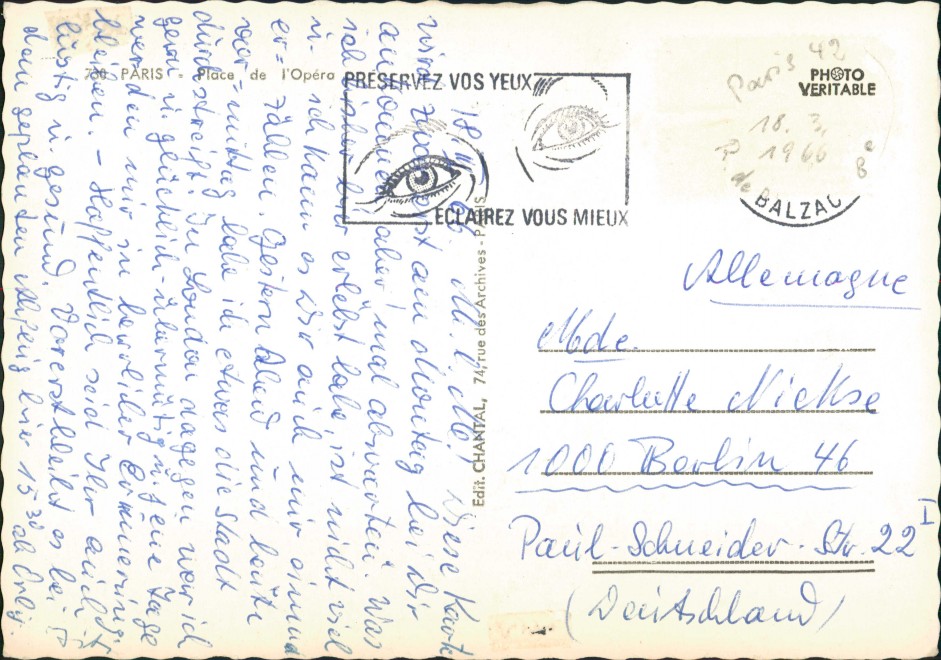 730 PARIS - Place de l'Opéra
PRESERVEZ VOS YEUX
ECLAIREZ VOUS MIEUX
PHOTO
VERITABLE
Paris 42
18. 3.
1966
de BALZAC 8e
Edit. CHANTAL, 74, rue des Archives - PARIS
18. III. 66. M. l. Mo! Diese Karte
wird zunächst am Dienstag bei dir
ankommen, aber mal abwarten. Was
ich bisher hier erlebt habe, ist nicht viel
u. ich kann es dir auch nur
er-zählen. Gestern Abend und heute
vor-mittag habe ich etwas die Stadt
durchstreift. In London dagegen war ich
gern u. glücklich-übermütig u. jene Tage
werden mir in herrlicher Erinnerung
bleiben. - Hoffentlich seid Ihr auch
lustig u. gesund. Vorerst bleibt es bei
dem geplanten Abflug hier 15 30 ab Orly
Allemagne
Mde.
Charlotte Nickse
1000 Berlin 46
Paul-Schneider-Str. 22 I
(Deutschland)